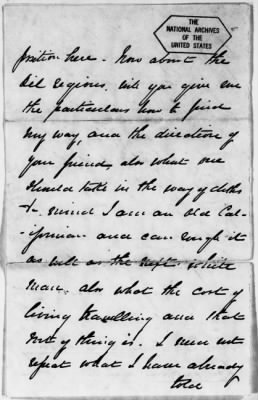 THE
NATIONAL ARCHIVES
OF THE
UNITED STATES
position here - Now about the
oil regions, will you give me
the particulars how to find
my way, and the direction of
your friend, also what one
should take in the way of clothes
&c. mind I am an old Cal-
-ifornian and can rough it
as well as the next white
man, also what the cost of
living travelling and that
sort of thing is. I need not
repeat what I have already
told